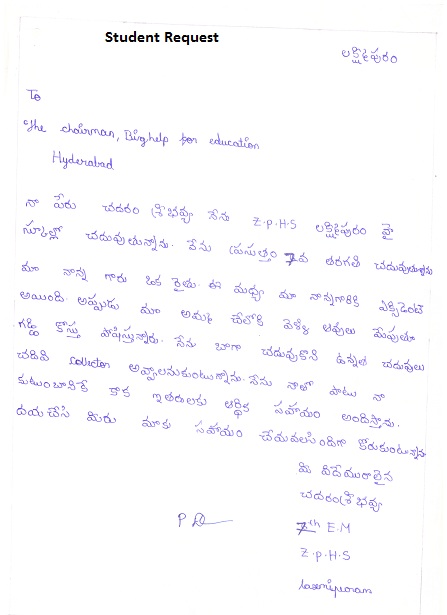 Student Request
లక్ష్మీపురం
To
The chairman, Bighelp for education
Hyderabad
నా పేరు చదరం శ్రీభవ్య నేను Z.P.H.S లక్ష్మీపురం హై
స్కూల్లో చదువుతున్నాను. నేను ప్రస్తుతం 7వ తరగతి చదువుతున్నాను
మా నాన్న గారు ఒక రైతు. ఈ మధ్య మా నాన్నగారికి ఏక్సిడెంట్
అయింది. అప్పుడు మా అమ్మ చేలోకి వెళ్ళి ఆవులు మేపుతూ
గడ్డి కోస్తు పోషిస్తున్నారు. నేను బాగా చదువుకొని ఉన్నత చదువులు
చదివి collector అవ్వాలనుకుంటున్నాను. నేను నాతో పాటు నా
కుటుంబానికే కాక ఇతరులకు ఆర్థిక సహాయం అందిస్తాను.
దయచేసి మిరు మాకు సహాయం చేయవలసిందిగా కోరుకుంటున్నాను
మి విదేమురాలైన
చదరం శ్రీభవ్య
7th E.M
Z.P.H.S